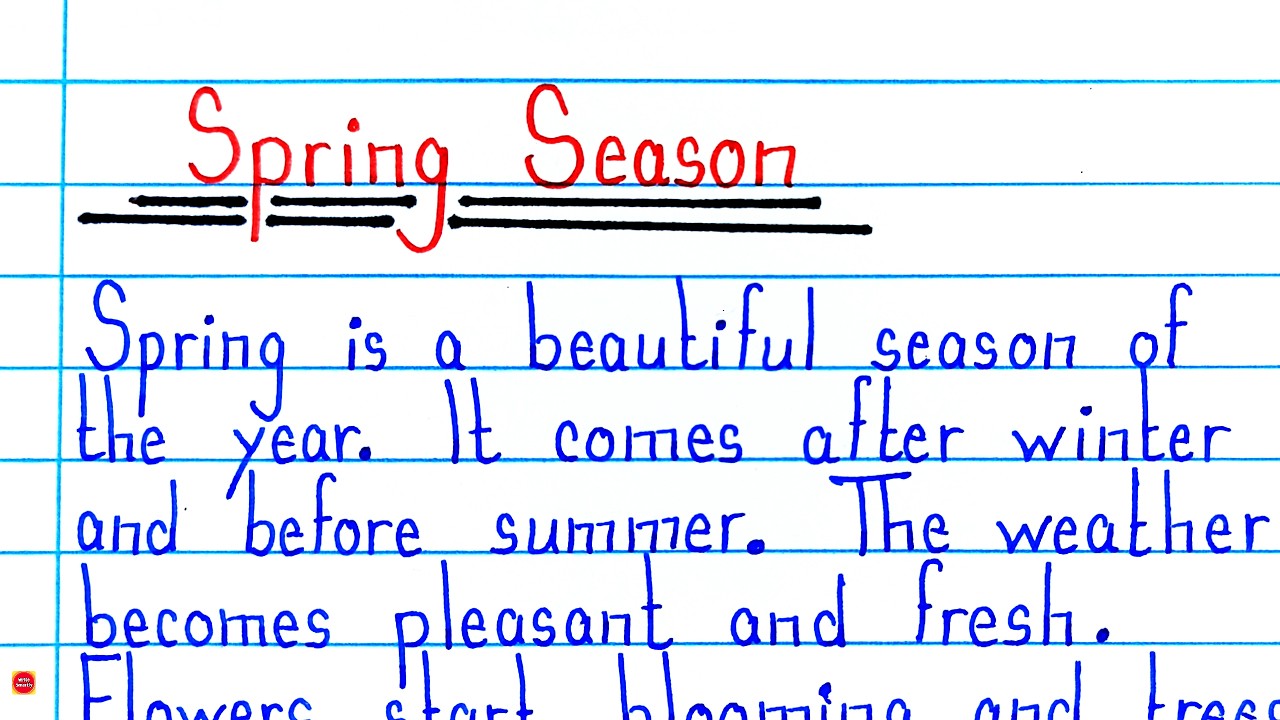 Spring Season
Spring is a beautiful season of
the year. It comes after winter
and before summer. The weather
becomes pleasant and fresh.
Flowers start blooming and trees
Write Smartly